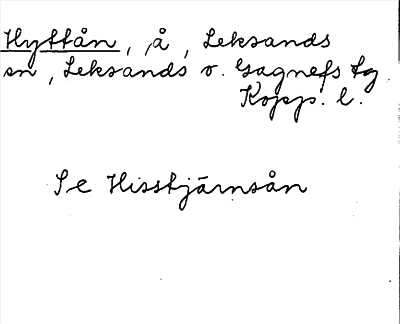 Hyttån, å, Leksands
sn, Leksands o. Gagnefs tg
Kopp. l.
Se Hisstjärnsån